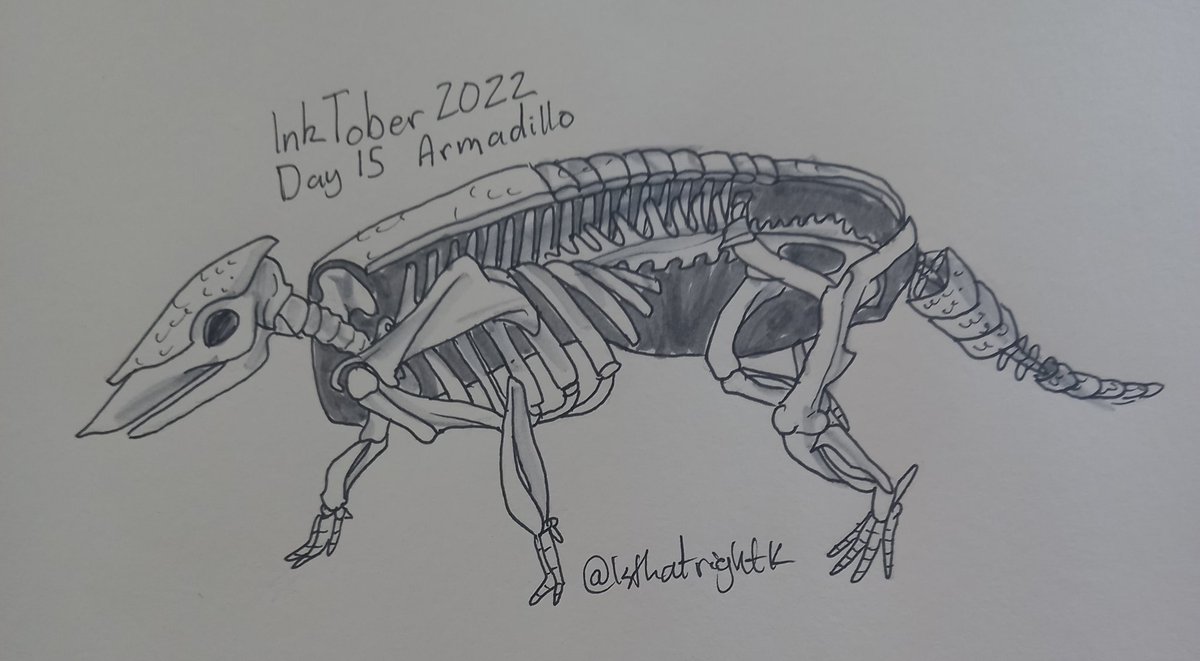 InkTober 2022
Day 15 Armadillo
@Isthatrightk